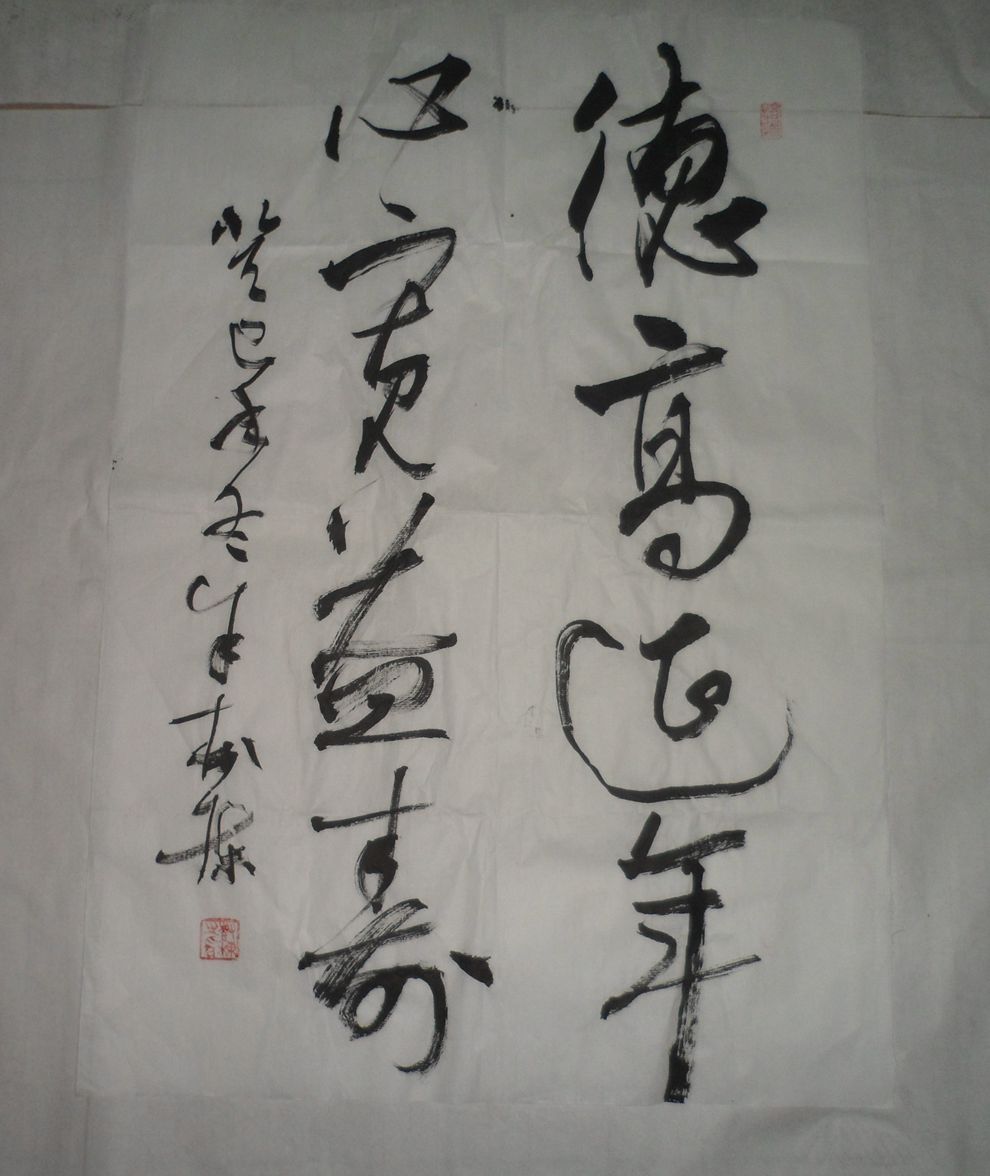 德高延年
心寬益壽
癸巳年冬